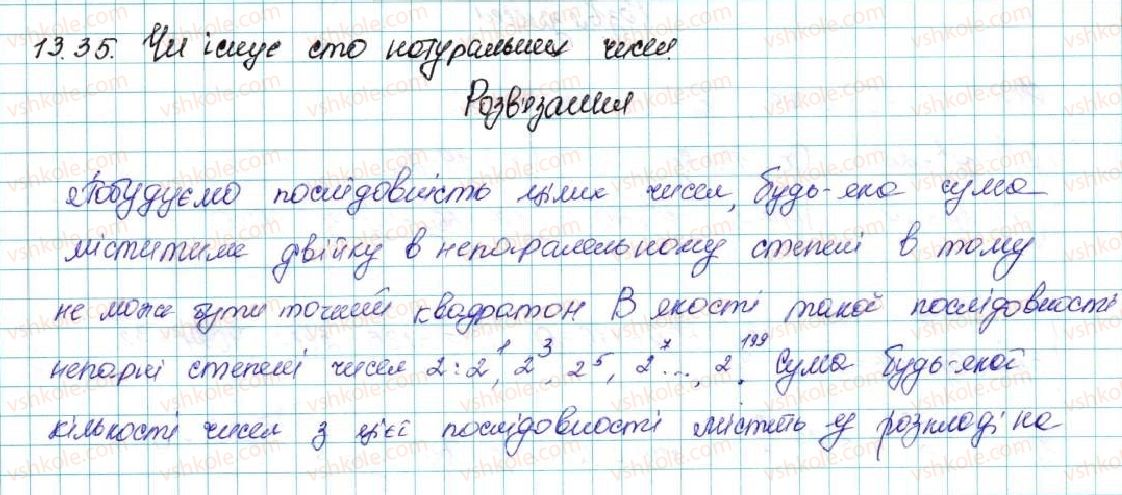 13.35. Чи існує сто натуральних чисел.
Розв'язання
Побудуємо послідовність цілих чисел, будь-яка сума
міститиме двійку в непаралельному степені в тому
не може бути точний квадратон В якості такої послідовності
непарні степені чисел 2: 2¹, 2³, 2⁵, 2⁷..., 2¹⁹⁹. Сума будь-якої
кількості чисел з цієї послідовності містить у розкладі на